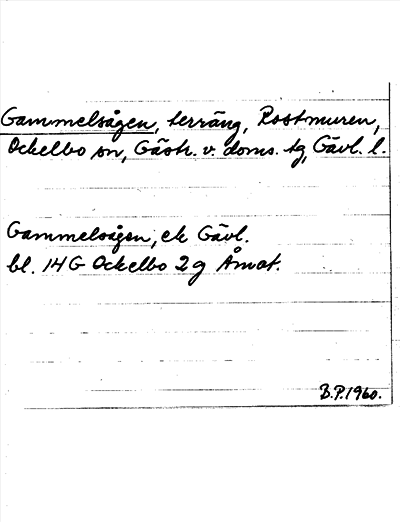 Gammelsågen, terräng, Rostmuren,
Ockelbo sn, Gästr. v. doms. tg, Gävl. l.
Gammelsågen, ek Gävl.
bl. 14G Ockelbo 2g Åmot.
B.P. 1960.